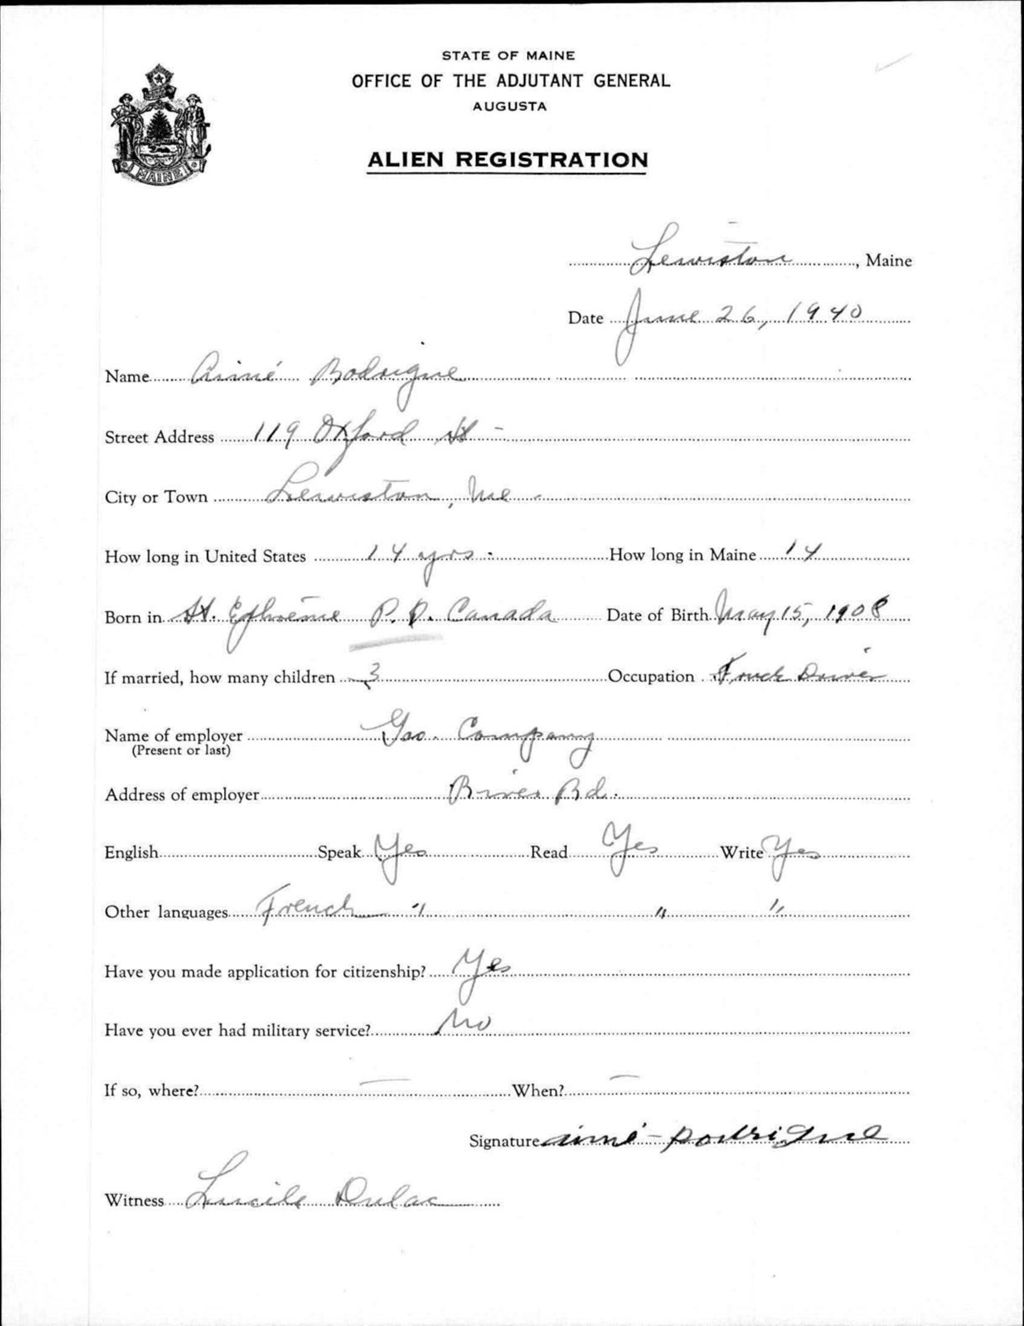 STATE OF MAINE
OFFICE OF THE ADJUTANT GENERAL
AUGUSTA
MAINE
ALIEN REGISTRATION
Lewiston, Maine
Date June 26, 1940
Name Aimé Rodrigue
Street Address 119 Oxford St -
City or Town Lewiston, Me -
How long in United States 14 yrs. How long in Maine 14
Born in St. Ephreme P. Q. Canada Date of Birth May 15, 1908
If married, how many children 3 Occupation Truck Driver
Name of employer Gas. Company
(Present or last)
Address of employer River Rd.
English Speak Yes Read Yes Write Yes
Other languages French " " "
Have you made application for citizenship? Yes
Have you ever had military service? No
If so, where? — When? —
Signature aimé - Rodrigue
Witness Lucile Dulac